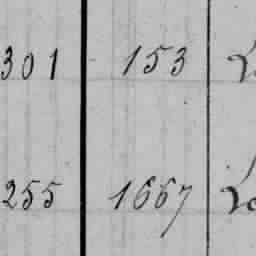 301 153
255 1667